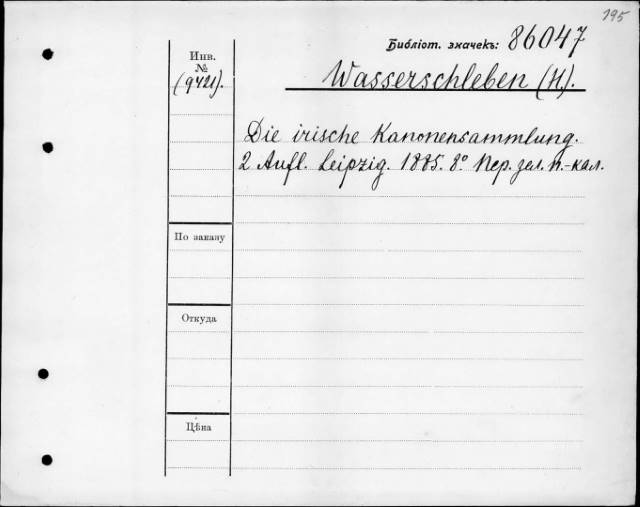 195
Библіот. значекъ: 86047
Инв. №
(9421).
Wasserschleben (H.).
Die irische Kanonensammlung.
2 Aufl. Leipzig. 1885. 8° Пер. зел. п.-кал.
По заказу
Откуда
Цѣна